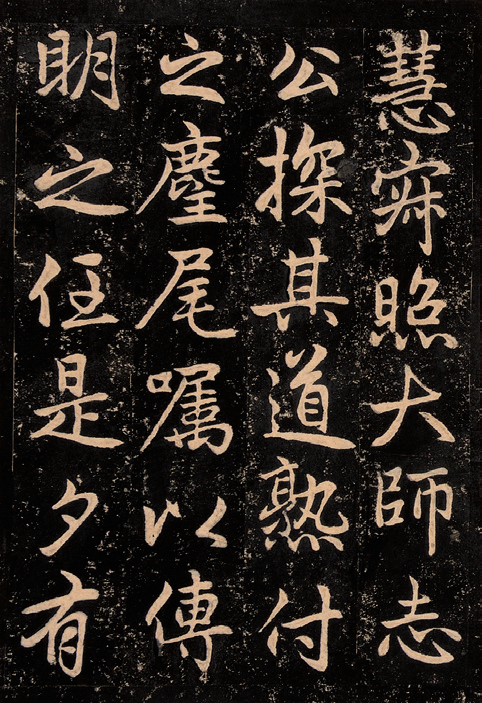 慧寂照大師志
公探其道熟付
之麈尾嘱以傳
明之任是夕有